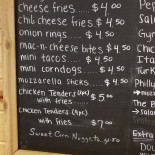 cheese fries.....$4.00
chili cheese fries $4.50
onion rings ..... $4.50
mac-n-cheese bites $4.50
mini tacos ..... $4.50
mini corndogs .... $4.50
mozzarella sticks
chicken Tenders
with fries..... $5.00
chicken Tenders
with fries
..... $7.00
Sweet Corn Nuggets
Sal
Ital
Turk
Philly
The B